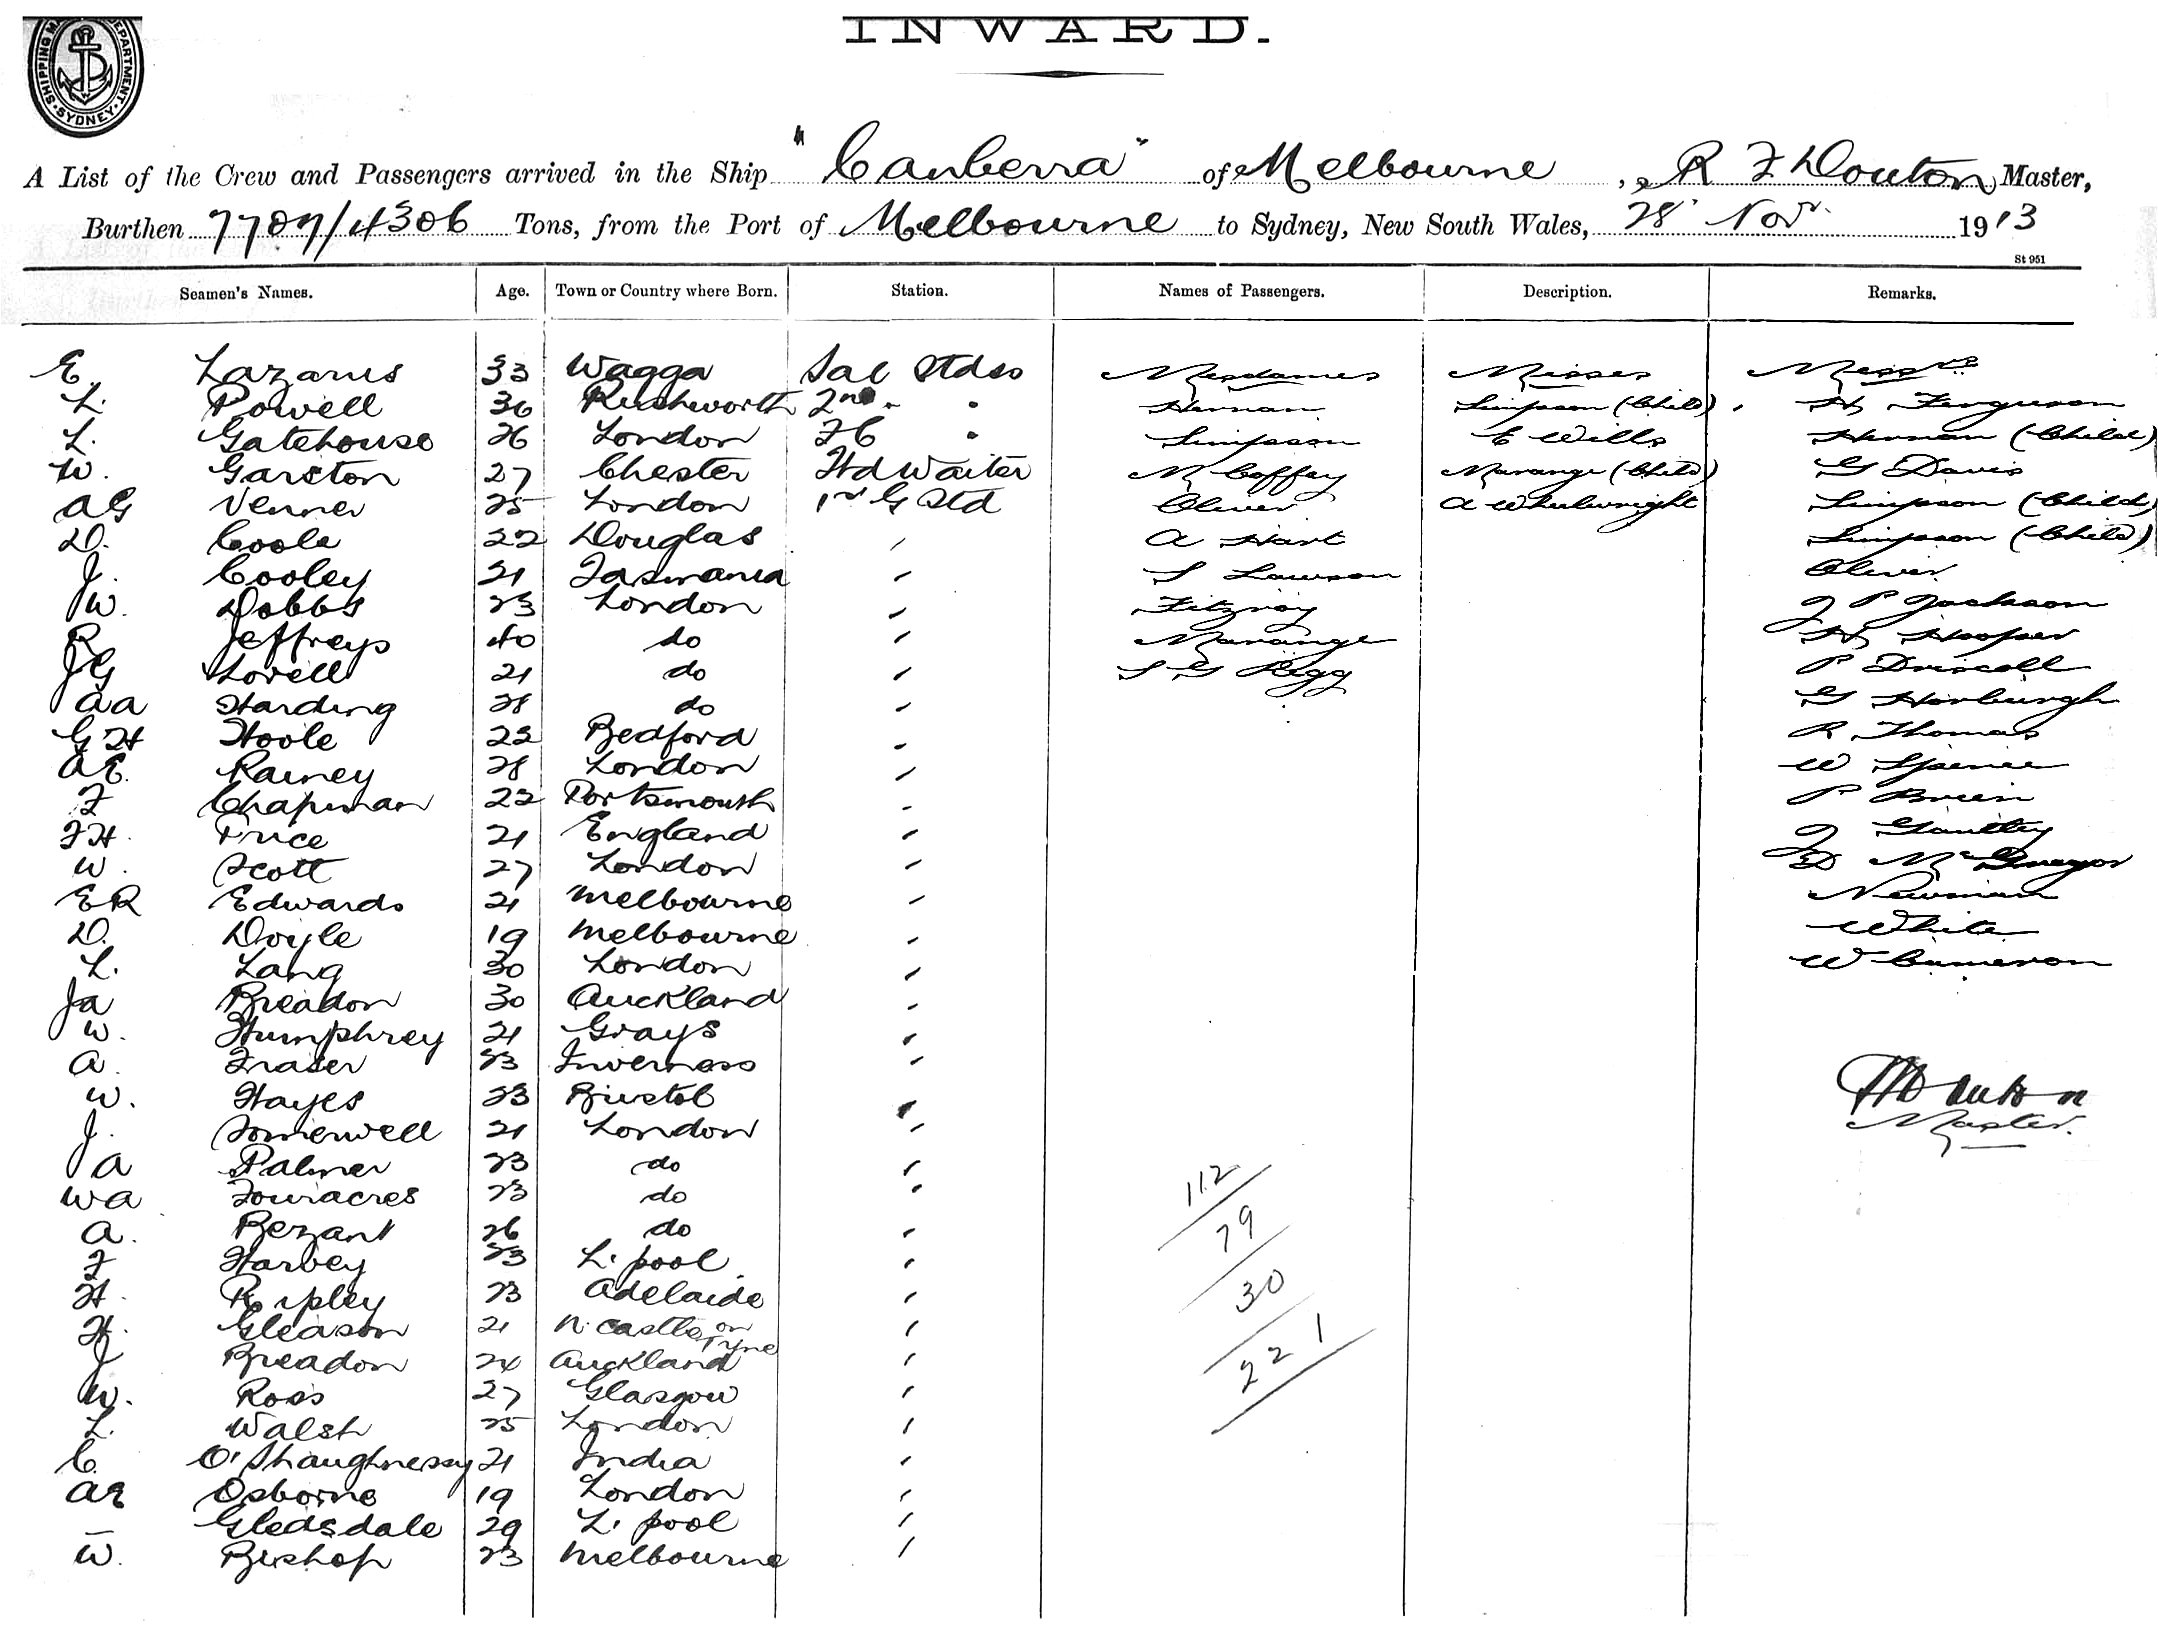 SHIPPING MA DEPARTMENT
SYDNEY
INWARD.
A List of the Crew and Passengers arrived in the Ship "Canberra" of Melbourne, R F Douton Master,
Burthen 7707/4306 Tons, from the Port of Melbourne to Sydney, New South Wales, 28 Novr. 1913
St 951
Seamen's Names. Age. Town or Country where Born. Station. Names of Passengers. Description. Remarks.
E. Lazarus 33 Wagga Sal Stdss Mesdames Misses Messrs
L. Powell 36 Rushworth 2nd " Hernan Simpson (Child) H Ferguson
L. Gatehouse 26 London " Simpson E Wills Hernan (Child)
W. Garston 27 Chester Hd Waiter M Coffey Marange (Child) G Davis
AG Venner 25 London 1st G Std Oliver A Wheelwright Simpson (Child)
D. Coole 22 Douglas " A Hart Simpson (Child)
J. Cooley 21 Tasmania " S Lawson Oliver
W. Dobbs 23 London " Fitzroy J P Jackson
R Jeffreys 40 do " Marange H Hooper
JG Lovell 21 do " S G Pegg P Driscoll
AA Harding 28 do " G Horburgh
GH Hoole 22 Bedford " R Thomas
AE. Rainey 28 London " W Spence
F Chapman 22 Portsmouth " P Brien
FH. Price 21 England " J
W. Scott 27 London " D McGregor
ER Edwards 21 Melbourne " Newman
D. Doyle 19 Melbourne " White
L. Lang 30 London " W Cameron
JA Breadon 30 Auckland "
W. Humphrey 21 Grays "
A. Fraser 23 Inverness "
W. Hayes 23 Bristol "
J. Somerwell 21 London "
JA Palmer 23 do "
WA Fouracres 23 do "
A. Bezant 26 do "
F Harvey 23 L'pool "
H. Ripley 23 Adelaide "
H. Gleason 21 N.castle on Tyne "
J Breadon 24 Auckland "
W. Ross 27 Glasgow "
L. Walsh 25 London "
C. O'Shaughnessy 21 India "
AE Osborne 19 London "
— Gledsdale 29 L'pool "
W. Bishop 23 Melbourne "
Douton
Master.
112
79
30
221